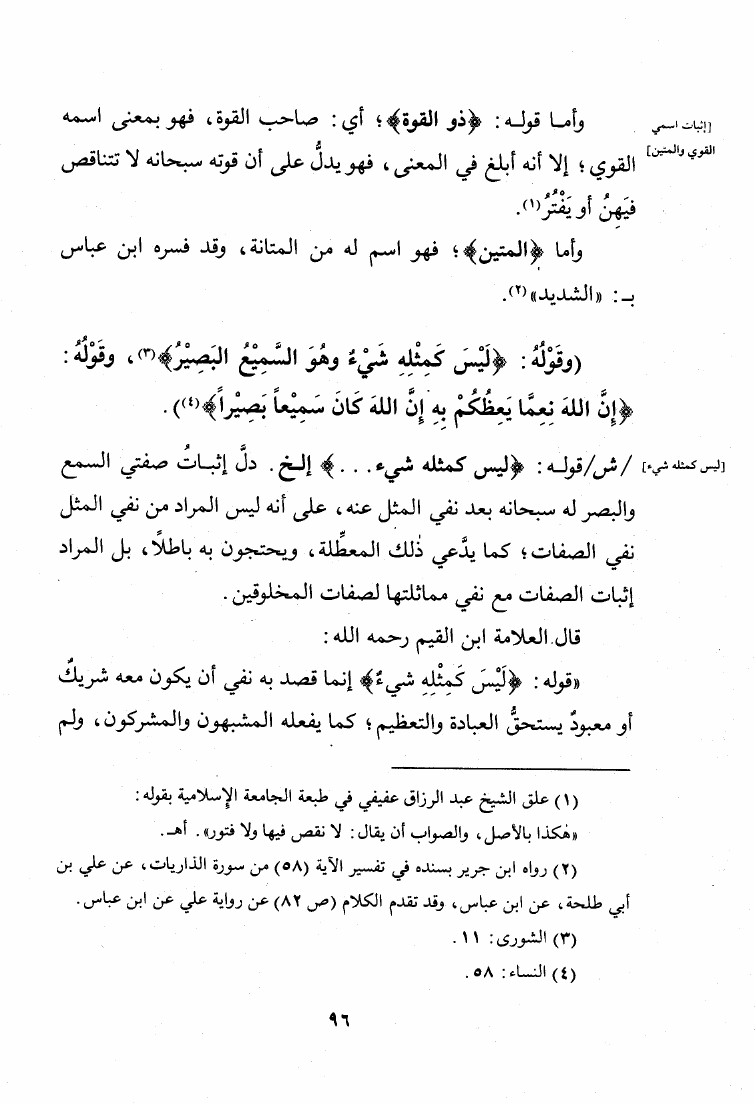 [إثبات اسمي
القوي والمتين]
وأمـا قولـه: ﴿ذو القوة﴾؛ أي: صاحب القوة، فهو بمعنى اسمه
القوي؛ إلا أنه أبلغ في المعنى، فهو يدلُّ على أن قوته سبحانه لا تتناقص
فيَهِنُ أو يَفْتُرُ(١).
وأما ﴿المتين﴾؛ فهو اسم له من المتانة، وقد فسره ابن عباس
بـ: «الشديد»(٢).
(وقَوْلُهُ: ﴿لَيْسَ كَمِثْلِه شَيْءٌ وهُوَ السَّمِيْعُ البَصِيْرُ﴾(٣)، وقَوْلُهُ:
﴿إِنَّ اللهَ نِعِمَّا يَعِظُكُمْ بِهِ إِنَّ اللهَ كَانَ سَمِيْعاً بَصِيْراً﴾(٤)).
[ليس كمثله شيء]
/ش/قولـه: ﴿ليس كمثله شيء...﴾ إلـخ. دلَّ إثبـاتُ صفتي السمع
والبصر له سبحانه بعد نفي المثل عنه، على أنه ليس المراد من نفي المثل
نفي الصفات؛ كما يدَّعي ذلك المعطِّلة، ويحتجون به باطلاً، بل المراد
إثبات الصفات مع نفي مماثلتها لصفات المخلوقين.
قال العلامة ابن القيم رحمه الله:
«قوله: ﴿لَيْسَ كَمِثْلِهِ شيءٌ﴾ إنما قصد به نفي أن يكون معه شريكٌ
أو معبودٌ يستحقُّ العبادة والتعظيم؛ كما يفعله المشبهون والمشركون، ولم
(١) علق الشيخ عبد الرزاق عفيفي في طبعة الجامعة الإسلامية بقوله:
«هكذا بالأصل، والصواب أن يقال: لا نقص فيها ولا فتور». أهـ.
(٢) رواه ابن جرير بسنده في تفسير الآية (٥٨) من سورة الذاريات، عن علي بن
أبي طلحة، عن ابن عباس، وقد تقدم الكلام (ص ٨٢) عن رواية علي عن ابن عباس.
(٣) الشورى: ١١.
(٤) النساء: ٥٨.
٩٦